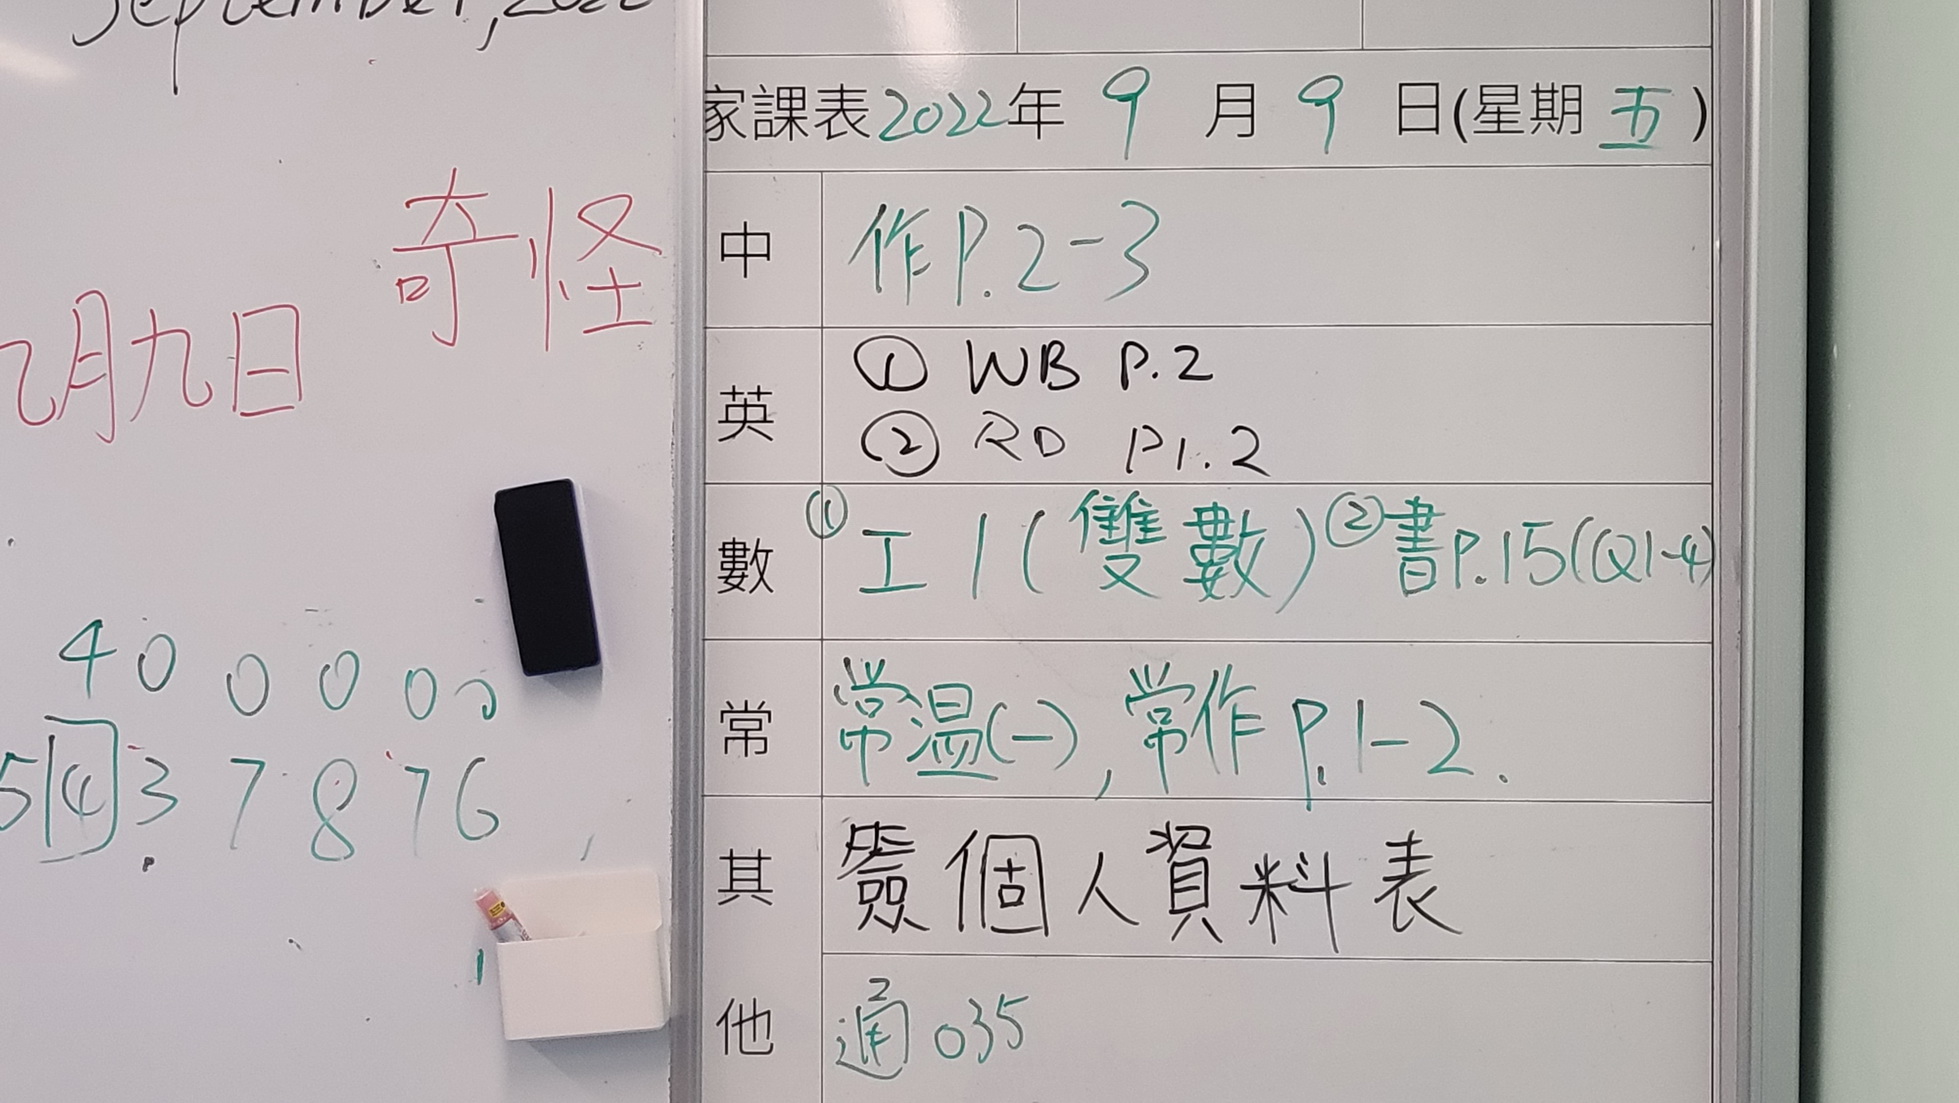 September, 2022
奇怪
九月九日
400000
5437876
家課表2022年 9 月 9 日(星期 五)
中 作P.2-3
英 ① WB P.2
② RD P1.2
數 ① 工1(雙數) ② 書P.15(Q1-4)
常 常温(一), 常作 P.1-2.
其他 簽個人資料表
通035